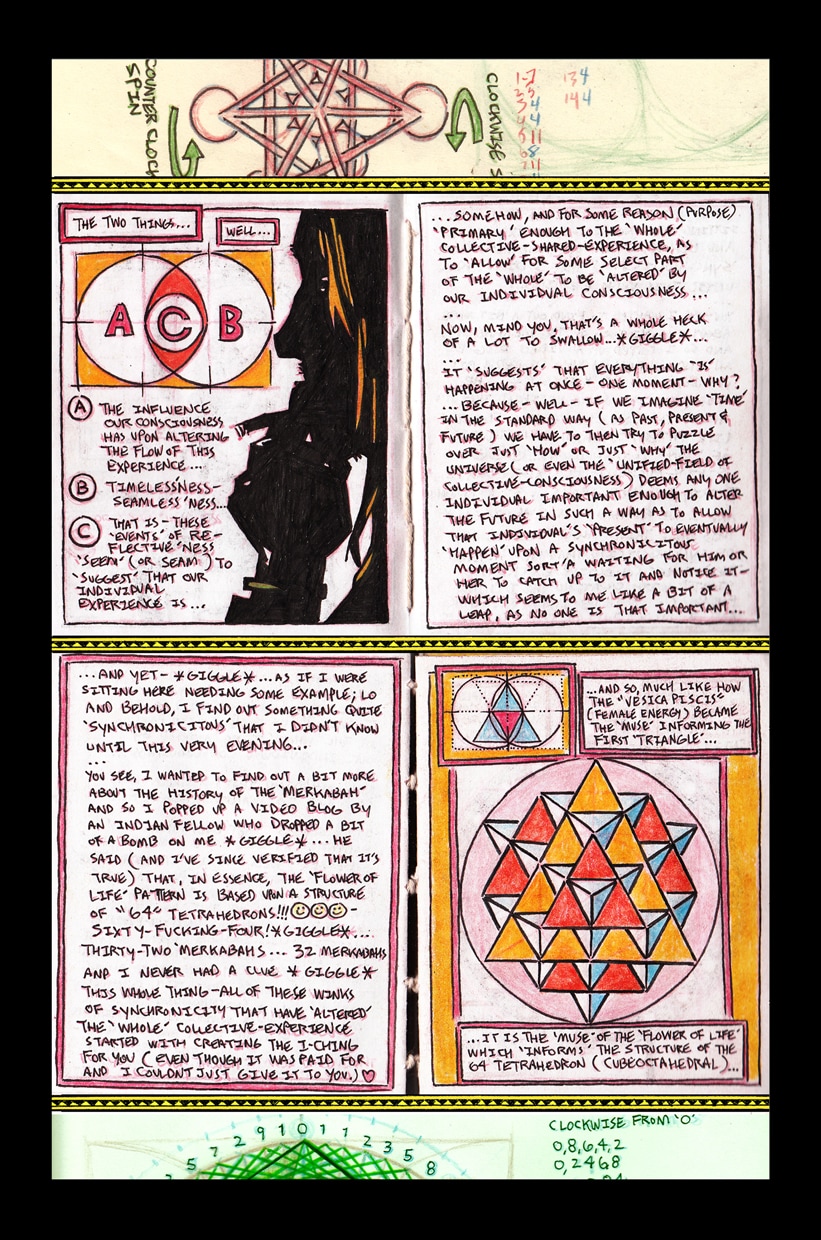 COUNTER CLOCK
SPIN
CLOCKWISE S
1-7
134
144
THE TWO THINGS...
WELL...
A C B
A THE INFLUENCE
OUR CONSCIOUSNESS
HAS UPON ALTERING
THE FLOW OF THIS
EXPERIENCE...
B TIMELESS'NESS-
SEAMLESS 'NESS...
C THAT IS - THESE
'EVENTS' OF RE-
FLECTIVE 'NESS
'SEEM' (OR SEAM) TO
'SUGGEST' THAT OUR
INDIVIDUAL
EXPERIENCE IS...
...SOMEHOW, AND FOR SOME REASON (PURPOSE)
'PRIMARY' ENOUGH TO THE 'WHOLE'
COLLECTIVE-SHARED-EXPERIENCE, AS
TO 'ALLOW' FOR SOME SELECT PART
OF THE 'WHOLE' TO BE 'ALTERED' BY
OUR INDIVIDUAL CONSCIOUSNESS...
...
NOW, MIND YOU, THAT'S A WHOLE HECK
OF A LOT TO SWALLOW...*GIGGLE*...
...
IT 'SUGGESTS' THAT EVERYTHING 'IS'
HAPPENING AT ONCE - ONE MOMENT - WHY?
...BECAUSE - WELL - IF WE IMAGINE 'TIME'
IN THE STANDARD WAY (AS PAST, PRESENT &
FUTURE) WE HAVE TO THEN TRY TO PUZZLE
OVER JUST 'HOW' OR JUST 'WHY' THE
UNIVERSE (OR EVEN THE 'UNIFIED-FIELD OF
COLLECTIVE-CONSCIOUSNESS) DEEMS ANY ONE
INDIVIDUAL IMPORTANT ENOUGH TO ALTER
THE FUTURE IN SUCH A WAY AS TO ALLOW
THAT INDIVIDUAL'S 'PRESENT' TO EVENTUALLY
'HAPPEN' UPON A SYNCHRONICITOUS
MOMENT SORT'A WAITING FOR HIM OR
HER TO CATCH UP TO IT AND NOTICE IT-
WHICH SEEMS TO ME LIKE A BIT OF A
LEAP, AS NO ONE IS THAT IMPORTANT...
...AND YET- *GIGGLE* ...AS IF I WERE
SITTING HERE NEEDING SOME EXAMPLE; LO
AND BEHOLD, I FIND OUT SOMETHING QUITE
'SYNCHRONICITOUS' THAT I DIDN'T KNOW
UNTIL THIS VERY EVENING...
...
YOU SEE, I WANTED TO FIND OUT A BIT MORE
ABOUT THE HISTORY OF THE 'MERKABAH'
AND SO I POPPED UP A VIDEO BLOG BY
AN INDIAN FELLOW WHO DROPPED A BIT
OF A BOMB ON ME *GIGGLE*... HE
SAID (AND I'VE SINCE VERIFIED THAT IT'S
TRUE) THAT, IN ESSENCE, THE 'FLOWER OF
LIFE' PATTERN IS BASED UPON A STRUCTURE
OF "64" TETRAHEDRONS!!! -
SIXTY-FUCKING-FOUR! *GIGGLE*...
THIRTY-TWO 'MERKABAHS... 32 MERKABAHS
AND I NEVER HAD A CLUE *GIGGLE*
THIS WHOLE THING-ALL OF THESE WINKS
OF SYNCHRONICITY THAT HAVE 'ALTERED'
THE 'WHOLE' COLLECTIVE-EXPERIENCE
STARTED WITH CREATING THE I-CHING
FOR YOU (EVEN THOUGH IT WAS PAID FOR
AND I COULDN'T JUST GIVE IT TO YOU.) ♡
...AND SO, MUCH LIKE HOW
THE "VESICA PISCIS"
(FEMALE ENERGY) BECAME
THE 'MUSE' INFORMING THE
FIRST 'TRIANGLE'...
...IT IS THE 'MUSE' OF THE 'FLOWER OF LIFE'
WHICH 'INFORMS' THE STRUCTURE OF THE
64 TETRAHEDRON (CUBEOCTAHEDRAL)...
5 7 2 9 1 0 1 1 2 3 5 8
CLOCKWISE FROM 'O'
0,8,6,4,2
0,2468